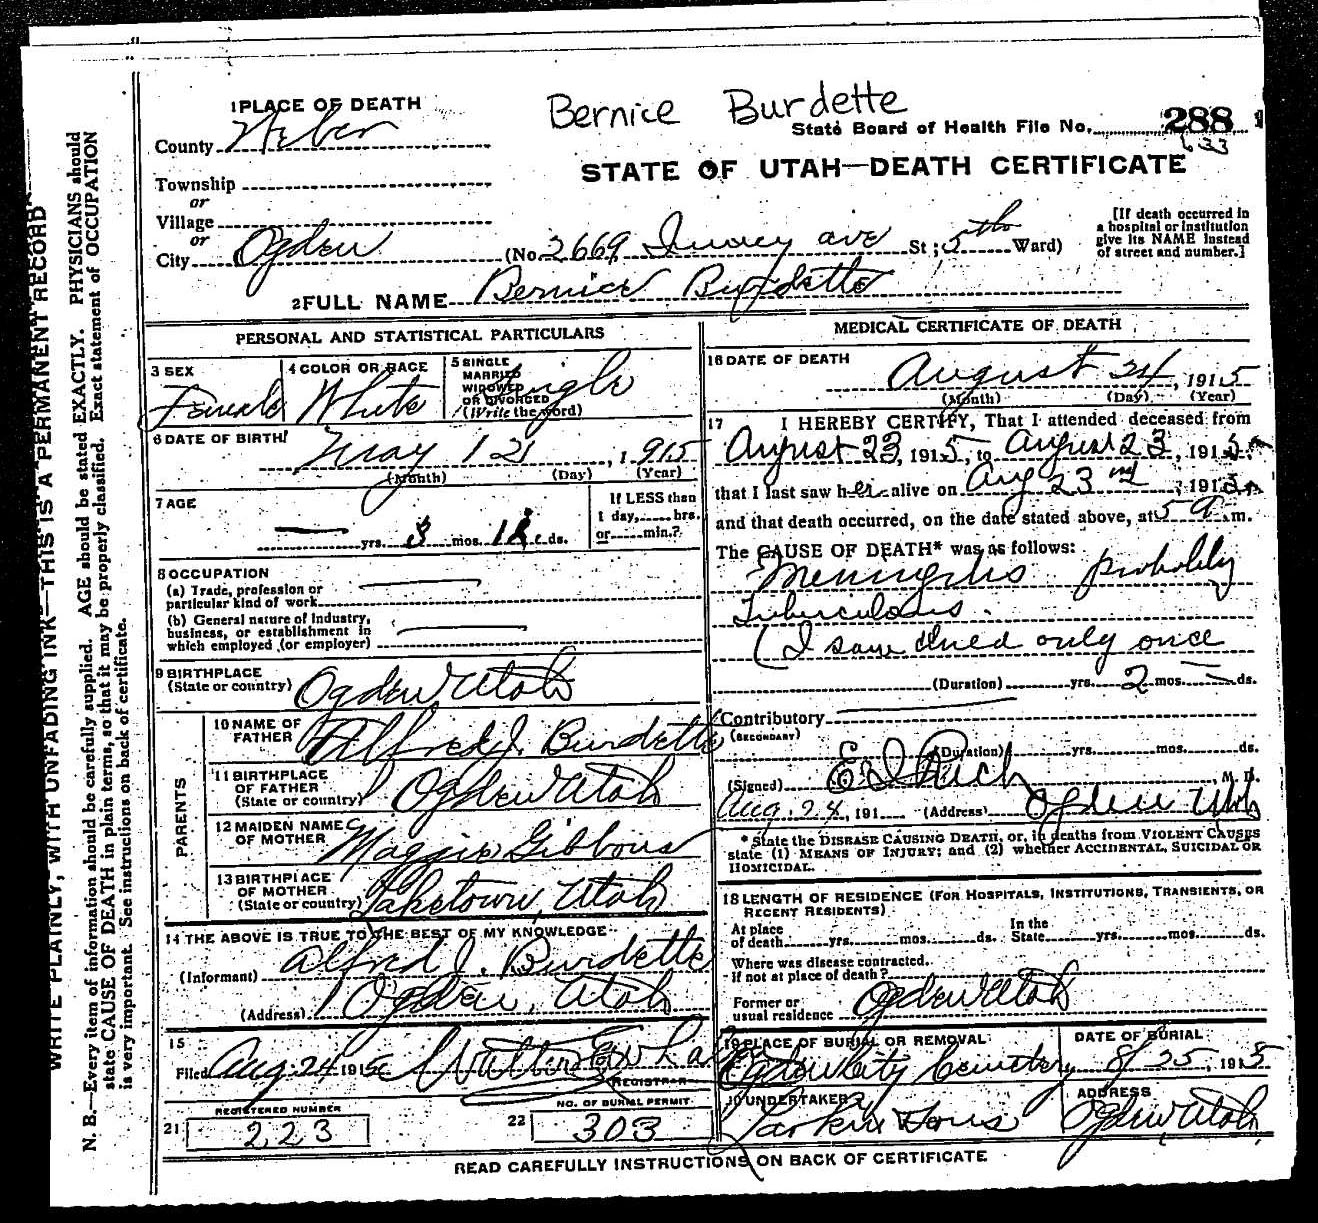 Bernice Burdette
1 PLACE OF DEATH
County Weber
State Board of Health File No. 288
633
STATE OF UTAH—DEATH CERTIFICATE
Township
or
Village
or
City Ogden (No. 2669 ave St; 5th Ward)
[If death occurred in a hospital or institution give its NAME instead of street and number.]
2 FULL NAME Bernice Burdette
PERSONAL AND STATISTICAL PARTICULARS
3 SEX Female
4 COLOR OR RACE White
5 SINGLE MARRIED WIDOWED OR DIVORCED (Write the word) Single
6 DATE OF BIRTH May 12, 1915
(Month) (Day) (Year)
7 AGE — yrs. 3 mos. 12 ds.
If LESS than 1 day, hrs. or min.?
8 OCCUPATION
(a) Trade, profession or particular kind of work
(b) General nature of industry, business, or establishment in which employed (or employer)
9 BIRTHPLACE (State or country) Ogden Utah
PARENTS
10 NAME OF FATHER Alfred J. Burdette
11 BIRTHPLACE OF FATHER (State or country) Ogden Utah
12 MAIDEN NAME OF MOTHER Maggie Gibbons
13 BIRTHPLACE OF MOTHER (State or country) Laketown, Utah
14 THE ABOVE IS TRUE TO THE BEST OF MY KNOWLEDGE
(Informant) Alfred J. Burdette
(Address) Ogden, Utah
15
Filed Aug. 24 1915 Walter
REGISTRAR
REGISTERED NUMBER
21 223
NO. OF BURIAL PERMIT
22 303
MEDICAL CERTIFICATE OF DEATH
16 DATE OF DEATH
August 24, 1915
(Month) (Day) (Year)
17 I HEREBY CERTIFY, That I attended deceased from
August 23, 1915, to August 23, 1915
that I last saw her alive on Aug 23rd, 1915
and that death occurred, on the date stated above, at 5 a m.
The CAUSE OF DEATH* was as follows:
Meningitis probably
Tuberculosis.
(I saw child only once
(Duration) yrs. 2 mos. — ds.
Contributory
(SECONDARY)
(Duration) yrs. mos. ds.
(Signed) E I Rich, M. D.
Aug. 24, 191 (Address) Ogden Utah
* State the DISEASE CAUSING DEATH, or, in deaths from VIOLENT CAUSES state (1) MEANS OF INJURY; and (2) whether ACCIDENTAL, SUICIDAL OR HOMICIDAL.
18 LENGTH OF RESIDENCE (FOR HOSPITALS, INSTITUTIONS, TRANSIENTS, OR RECENT RESIDENTS)
At place of death yrs. mos. ds. In the State yrs. mos. ds.
Where was disease contracted, if not at place of death?
Former or usual residence Ogden Utah
19 PLACE OF BURIAL OR REMOVAL Ogden City Cemetery
DATE OF BURIAL 8/25, 1915
20 UNDERTAKER Larkin & Sons
ADDRESS Ogden, Utah
READ CAREFULLY INSTRUCTIONS ON BACK OF CERTIFICATE
WRITE PLAINLY, WITH UNFADING INK—THIS IS A PERMANENT RECORD
N. B.—Every item of information should be carefully supplied. AGE should be stated EXACTLY. PHYSICIANS should
state CAUSE OF DEATH in plain terms, so that it may be properly classified. Exact statement of OCCUPATION
is very important. See instructions on back of certificate.